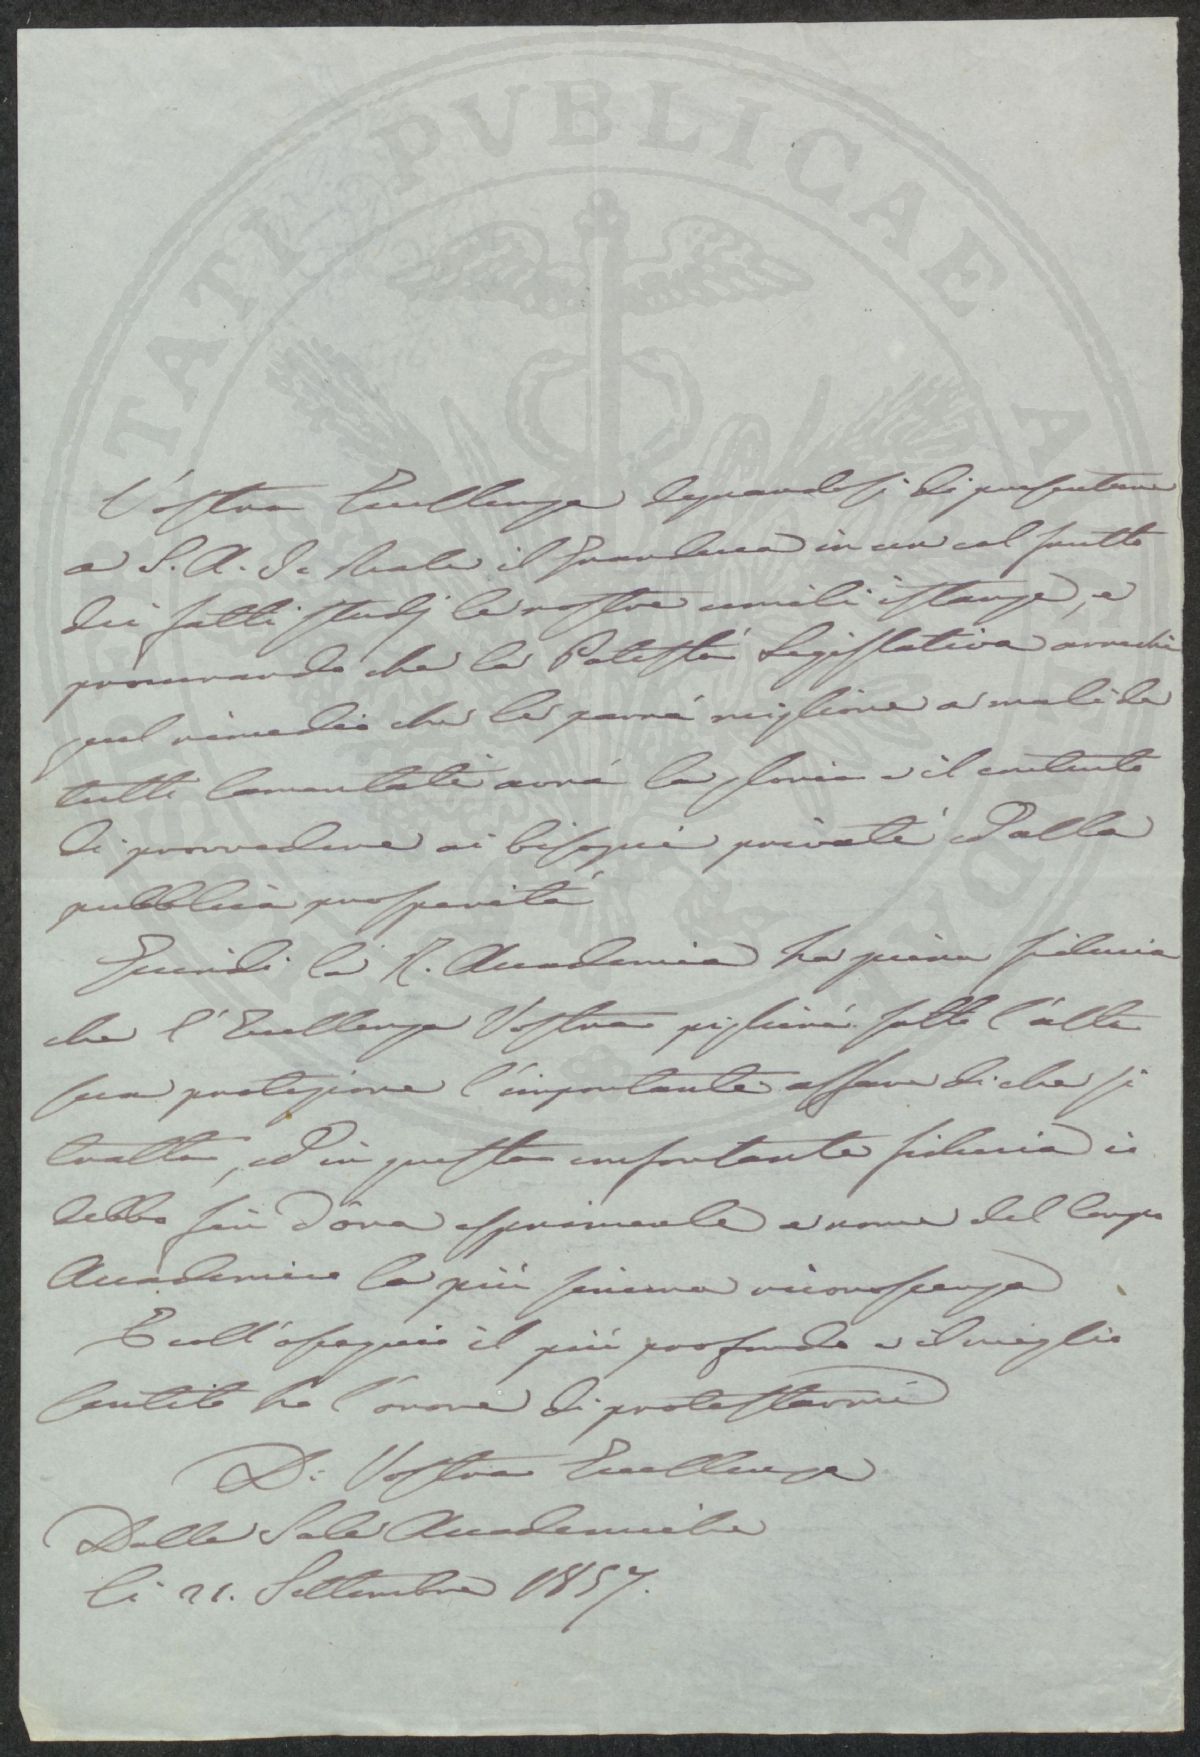 PROSPERITATI PUBLICAE AUGENDAE
Vostra Eccellenza degnandosi di presentare
a S. A. I. e Reale il Granduca in un col frutto
dei fatti studj le nostre umili istanze, e
procurando che la Potestà Legislativa arrechi
quel rimedio che le parrà migliore a mali da
tutti lamentati avrà la gloria e il contento
di provvedere ai bisogni privati ed alla
pubblica prosperità
Quindi la R. Accademia ha piena fiducia
che l'Eccellenza Vostra piglierà sotto l'alta
sua protezione l'importante affare di che si
tratta, ed in questa confortante fiducia io
debbo fin d'ora esprimerle a nome del Corpo
Accademico la più sincera riconoscenza
E coll'ossequio il più profondo e il meglio
sentito ho l'onore di protestarmi
Di Vostra Eccellenza
Dalle Sale Accademiche
li 21. Settembre 1857.